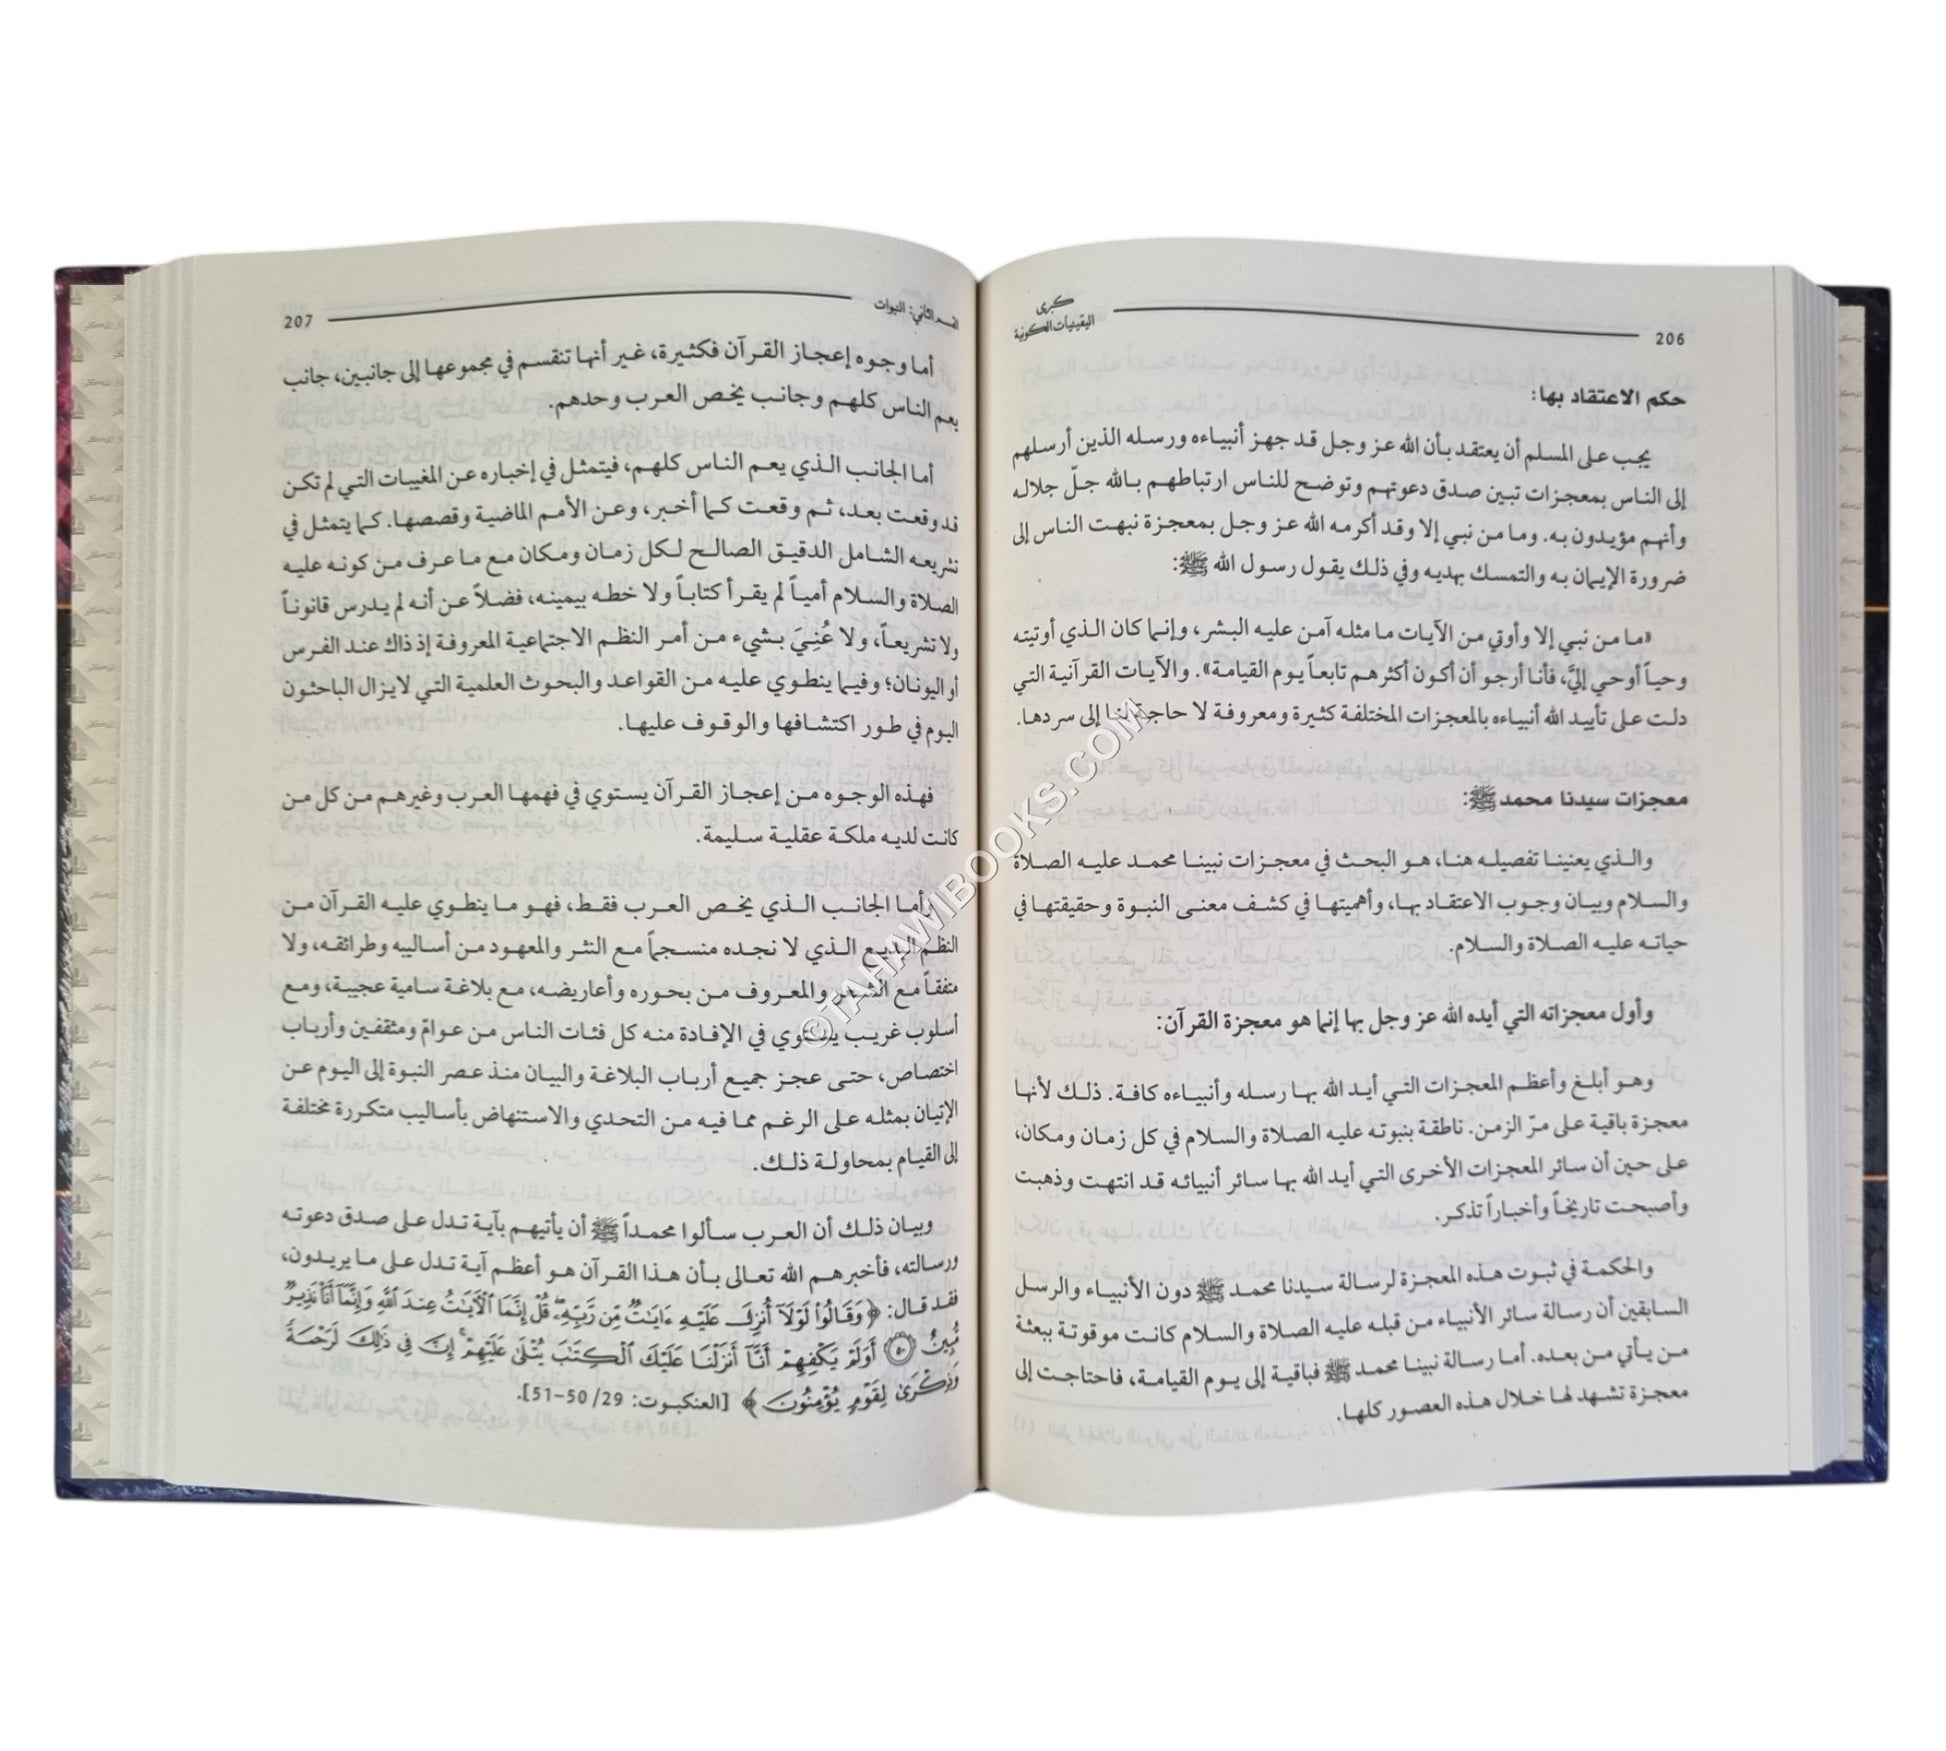 206
كبرى
اليقينيات الكونية
حكم الاعتقاد بها:
يجب على المسلم أن يعتقد بأن الله عز وجل قد جهز أنبياءه ورسله الذين أرسلهم
إلى الناس بمعجزات تبين صدق دعوتهم وتوضح للناس ارتباطهم بالله جلّ جلاله
وأنهم مؤيدون به. وما من نبي إلا وقد أكرمه الله عز وجل بمعجزة نبهت الناس إلى
ضرورة الإيمان به والتمسك بهديه وفي ذلك يقول رسول الله ﷺ:
«ما من نبي إلا وأوتي من الآيات ما مثله آمن عليه البشر، وإنما كان الذي أوتيته
وحياً أوحي إليَّ، فأنا أرجو أن أكون أكثرهم تابعاً يوم القيامة». والآيات القرآنية التي
دلت على تأييد الله أنبياءه بالمعجزات المختلفة كثيرة ومعروفة لا حاجة بنا إلى سردها.
معجزات سيدنا محمد ﷺ:
والذي يعنينا تفصيله هنا، هو البحث في معجزات نبينا محمد عليه الصلاة
والسلام وبيان وجوب الاعتقاد بها، وأهميتها في كشف معنى النبوة وحقيقتها في
حياته عليه الصلاة والسلام.
وأول معجزاته التي أيده الله عز وجل بها إنما هو معجزة القرآن:
وهو أبلغ وأعظم المعجزات التي أيد الله بها رسله وأنبياءه كافة. ذلك لأنها
معجزة باقية على مرّ الزمن. ناطقة بنبوته عليه الصلاة والسلام في كل زمان ومكان،
على حين أن سائر المعجزات الأخرى التي أيد الله بها سائر أنبيائه قد انتهت وذهبت
وأصبحت تاريخاً وأخباراً تذكر.
والحكمة في ثبوت هذه المعجزة لرسالة سيدنا محمد ﷺ دون الأنبياء والرسل
السابقين أن رسالة سائر الأنبياء من قبله عليه الصلاة والسلام كانت موقوتة ببعثة
من يأتي من بعده. أما رسالة نبينا محمد ﷺ فباقية إلى يوم القيامة، فاحتاجت إلى
معجزة تشهد لها خلال هذه العصور كلها.
القسم الثاني: النبوات
207
أما وجوه إعجاز القرآن فكثيرة، غير أنها تنقسم في مجموعها إلى جانبين، جانب
يعم الناس كلهم وجانب يخص العرب وحدهم.
أما الجانب الذي يعم الناس كلهم، فيتمثل في إخباره عن المغيبات التي لم تكن
قد وقعت بعد، ثم وقعت كما أخبر، وعن الأمم الماضية وقصصها. كما يتمثل في
تشريعه الشامل الدقيق الصالح لكل زمان ومكان مع ما عرف من كونه عليه
الصلاة والسلام أمياً لم يقرأ كتاباً ولا خطه بيمينه، فضلاً عن أنه لم يدرس قانوناً
ولا تشريعاً، ولا عُنِيَ بشيء من أمر النظم الاجتماعية المعروفة إذ ذاك عند الفرس
أو اليونان؛ وفيما ينطوي عليه من القواعد والبحوث العلمية التي لا يزال الباحثون
اليوم في طور اكتشافها والوقوف عليها.
فهذه الوجوه من إعجاز القرآن يستوي في فهمها العرب وغيرهم من كل من
كانت لديه ملكة عقلية سليمة.
وأما الجانب الذي يخص العرب فقط، فهو ما ينطوي عليه القرآن من
النظم البديع الذي لا نجده منسجماً مع النثر والمعهود من أساليبه وطرائقه، ولا
متفقاً مع الشعر والمعروف من بحوره وأعاريضه، مع بلاغة سامية عجيبة، ومع
أسلوب غريب يستوي في الإفادة منه كل فئات الناس من عوامّ ومثقفين وأرباب
اختصاص، حتى عجز جميع أرباب البلاغة والبيان منذ عصر النبوة إلى اليوم عن
الإتيان بمثله على الرغم مما فيه من التحدي والاستنهاض بأساليب متكررة مختلفة
إلى القيام بمحاولة ذلك.
وبيان ذلك أن العرب سألوا محمداً ﷺ أن يأتيهم بآية تدل على صدق دعوته
ورسالته، فأخبرهم الله تعالى بأن هذا القرآن هو أعظم آية تدل على ما يريدون،
فقد قال: ﴿وَقَالُوا۟ لَوْلَآ أُنزِلَ عَلَيْهِ ءَايَٰتٌ مِّن رَّبِّهِۦ ۖ قُلْ إِنَّمَا ٱلْءَايَٰتُ عِندَ ٱللَّهِ وَإِنَّمَآ أَنَا۠ نَذِيرٌ
مُّبِينٌ ۝٥٠ أَوَلَمْ يَكْفِهِمْ أَنَّآ أَنزَلْنَا عَلَيْكَ ٱلْكِتَٰبَ يُتْلَىٰ عَلَيْهِمْ ۚ إِنَّ فِى ذَٰلِكَ لَرَحْمَةً
وَذِكْرَىٰ لِقَوْمٍ يُؤْمِنُونَ﴾ [العنكبوت: 29/ 50-51].
©TAHAWIBOOKS.COM